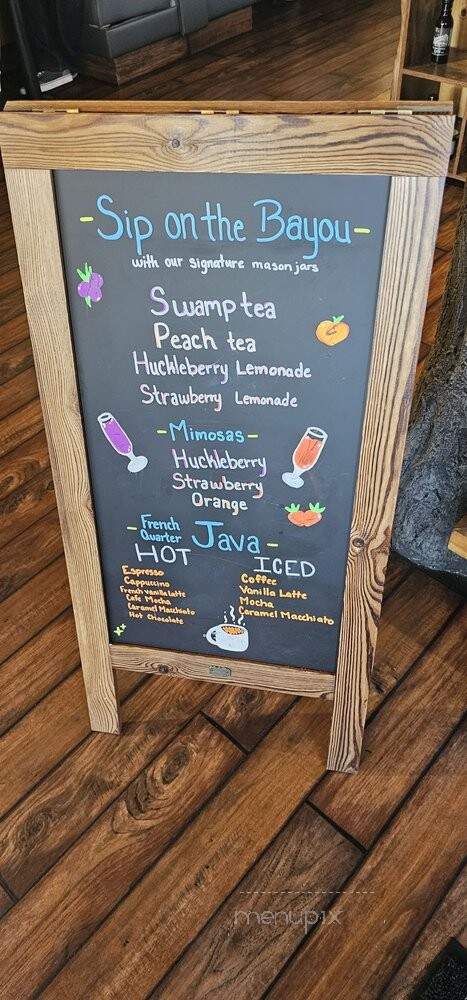 -Sip on the Bayou-
with our signature mason jars
Swamp tea
Peach tea
Huckleberry Lemonade
Strawberry Lemonade
-Mimosas-
Huckleberry
Strawberry
Orange
-French Quarter Java-
HOT
Espresso
Cappuccino
French vanilla latte
Cafe Mocha
Caramel Macchiato
Hot Chocolate
ICED
Coffee
Vanilla Latte
Mocha
Caramel Macchiato
menupix